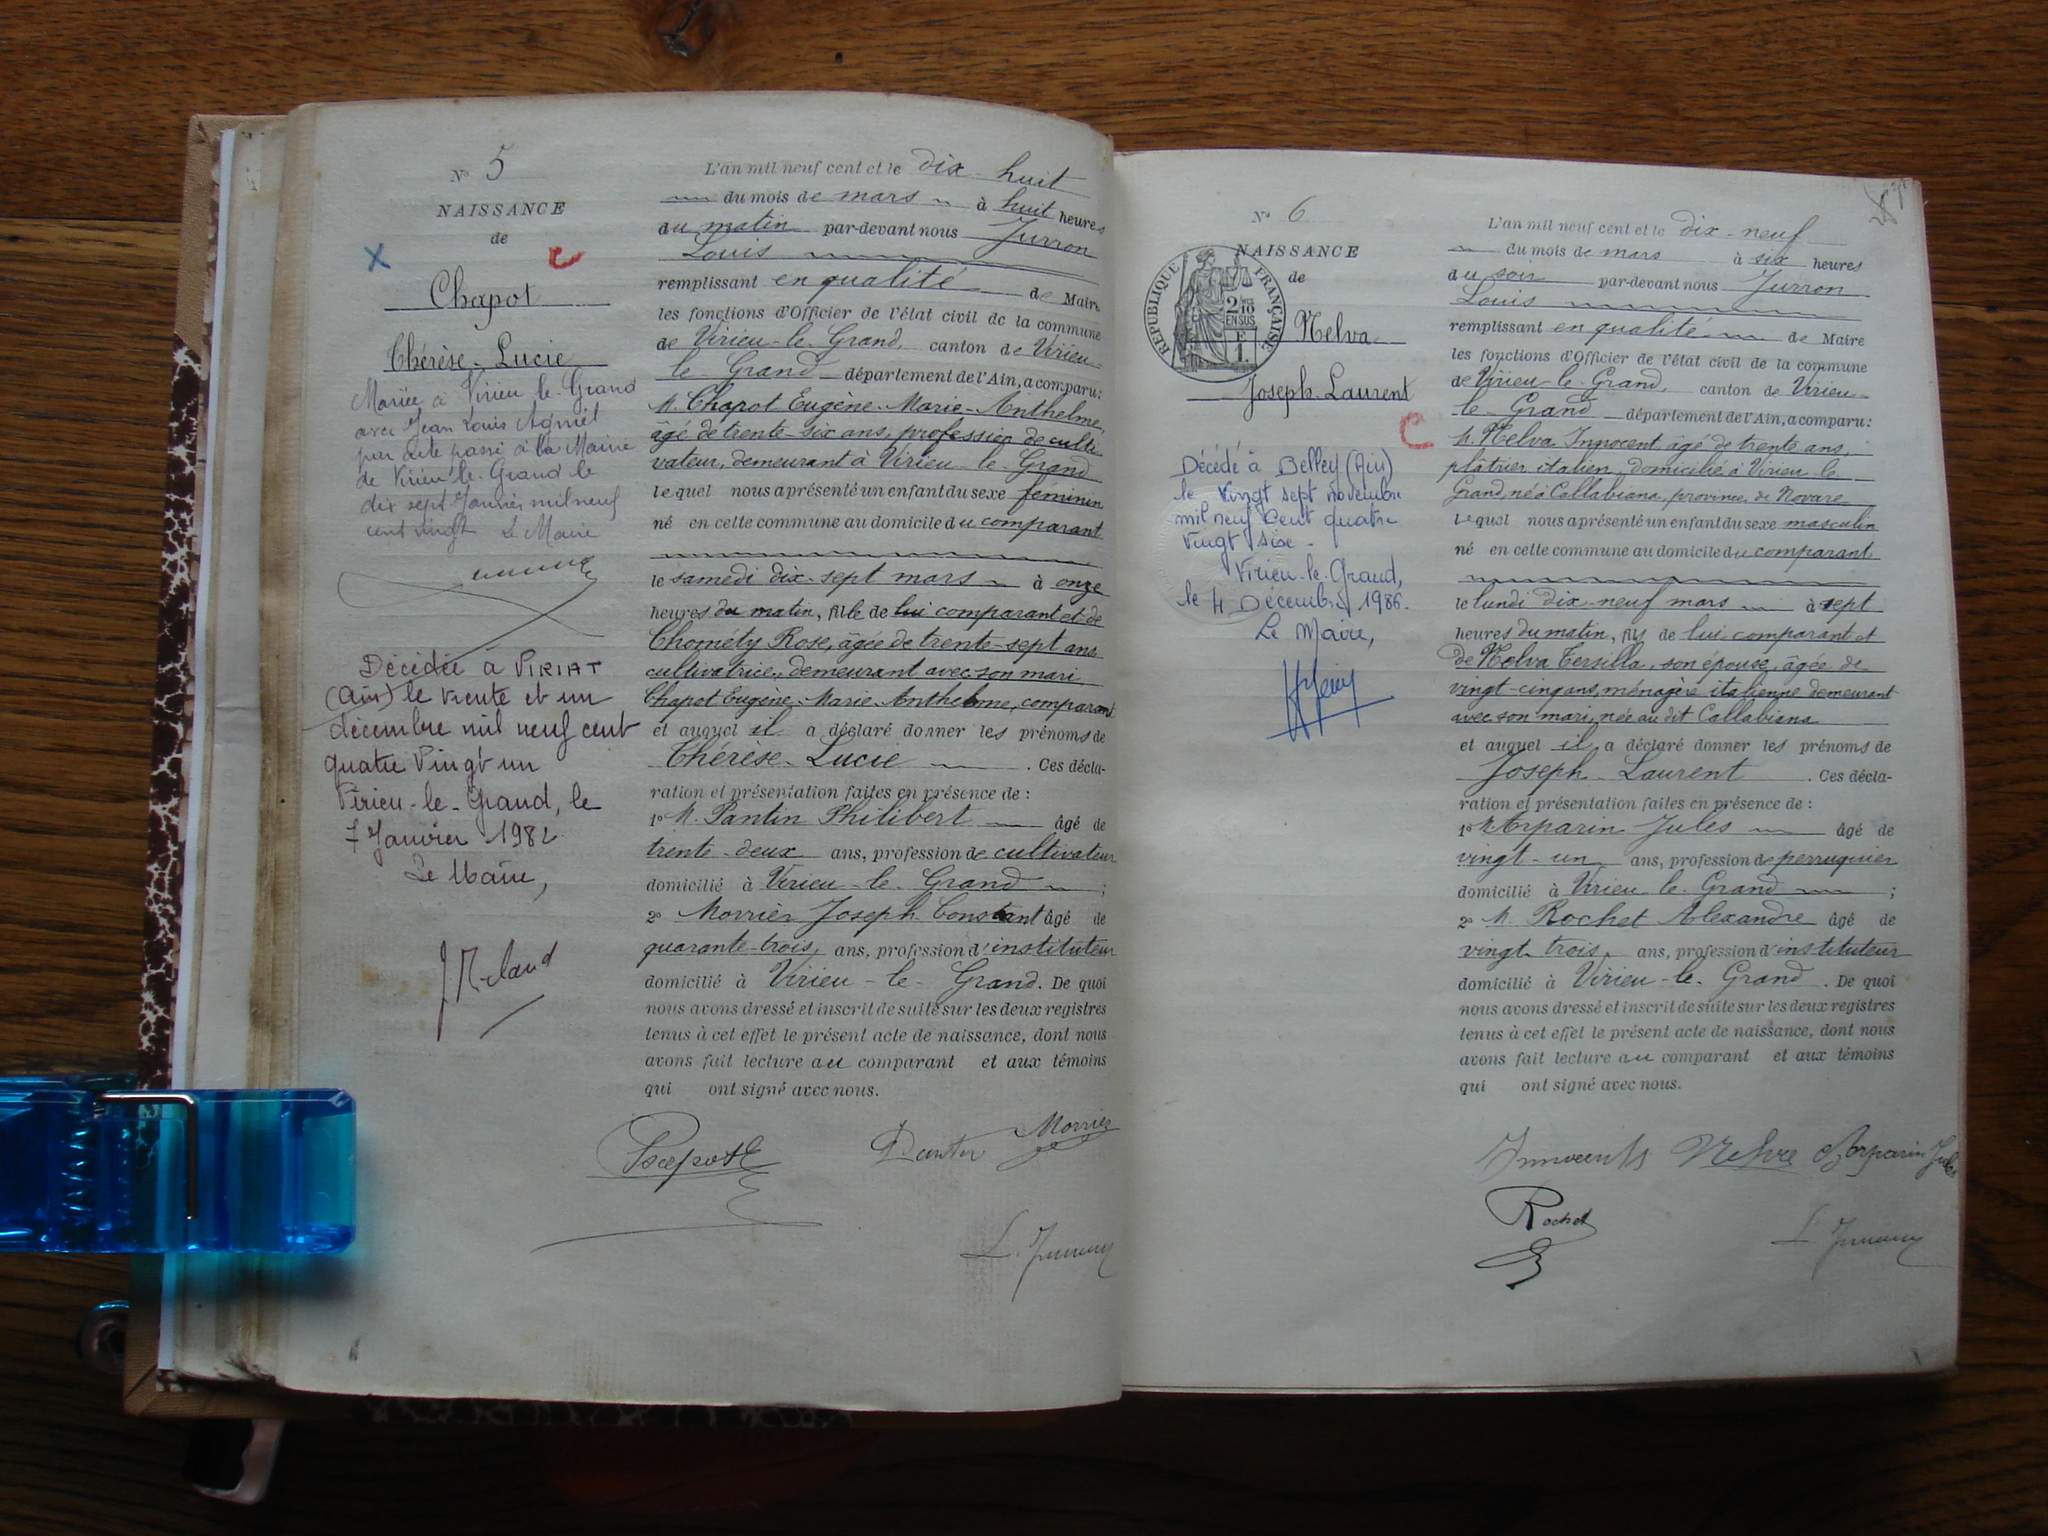 N° 5
NAISSANCE
de
Chapot
Thérèse-Lucie
Mariée à Virieu-le-Grand
avec Jean Louis
par acte passé à la Mairie
de Virieu-le-Grand le
dix sept Janvier mil neuf
cent vingt Le Maire
Décédée à VIRIAT
(Ain) le trente et un
décembre mil neuf cent
quatre Vingt un
Virieu-le-Grand, le
7 Janvier 1982
Le Maire,
L'an mil neuf cent et le dix-huit
du mois de mars à huit heures
du matin par-devant nous Jurron
Louis
remplissant en qualité de Maire
les fonctions d'Officier de l'état civil de la commune
de Virieu-le-Grand, canton de Virieu-
le-Grand département de l'Ain, a comparu:
M. Chapot Eugène-Marie-Anthelme,
âgé de trente-six ans, profession de culti
vateur, demeurant à Virieu-le-Grand
lequel nous a présenté un enfant du sexe féminin
né en cette commune au domicile du comparant
le samedi dix-sept mars à onze
heures du matin, fille de lui comparant et de
Chomety Rose, âgée de trente-sept ans
cultivatrice, demeurant avec son mari
Chapot Eugène-Marie-Anthelme, comparant
et auquel il a déclaré donner les prénoms de
Thérèse-Lucie. Ces décla-
ration et présentation faites en présence de :
1° M. Pantin Philibert âgé de
trente-deux ans, profession de cultivateur
domicilié à Virieu-le-Grand ;
2° Morrier Joseph Constant âgé de
quarante-trois, ans, profession d'instituteur
domicilié à Virieu-le-Grand. De quoi
nous avons dressé et inscrit de suite sur les deux registres
tenus à cet effet le présent acte de naissance, dont nous
avons fait lecture au comparant et aux témoins
qui ont signé avec nous.
Chapot Pantin Morrier
L. Jurron
N° 6
NAISSANCE
de
RÉPUBLIQUE FRANÇAISE
2/10
EN SUS
1F
Nelva
Joseph-Laurent
C
Décédé à Belley (Ain)
le vingt sept novembre
mil neuf cent quatre
vingt six -
Virieu-le-Grand,
le 4 Décembre 1986.
Le Maire,
L'an mil neuf cent et le dix-neuf
du mois de mars à six heures
du soir par-devant nous Jurron
Louis
remplissant en qualité de Maire
les fonctions d'Officier de l'état civil de la commune
de Virieu-le-Grand, canton de Virieu-
le-Grand département de l'Ain, a comparu:
M. Nelva Innocent, âgé de trente ans,
plâtrier italien, domicilié à Virieu-le
Grand, né à Callabiana, province de Novare
lequel nous a présenté un enfant du sexe masculin
né en cette commune au domicile du comparant
le lundi dix-neuf mars à sept
heures du matin, fils de lui comparant et
de Nelva Tersilla, son épouse, âgée de
vingt-cinq ans, ménagère italienne demeurant
avec son mari, née au dit Callabiana
et auquel il a déclaré donner les prénoms de
Joseph-Laurent. Ces décla-
ration et présentation faites en présence de :
1° M. Arparin Jules âgé de
vingt-un ans, profession de perruquier
domicilié à Virieu-le-Grand ;
2° M. Rochet Alexandre âgé de
vingt-trois, ans, profession d'instituteur
domicilié à Virieu-le-Grand. De quoi
nous avons dressé et inscrit de suite sur les deux registres
tenus à cet effet le présent acte de naissance, dont nous
avons fait lecture au comparant et aux témoins
qui ont signé avec nous.
Nelva Arparin Jules
Rochet
L. Jurron